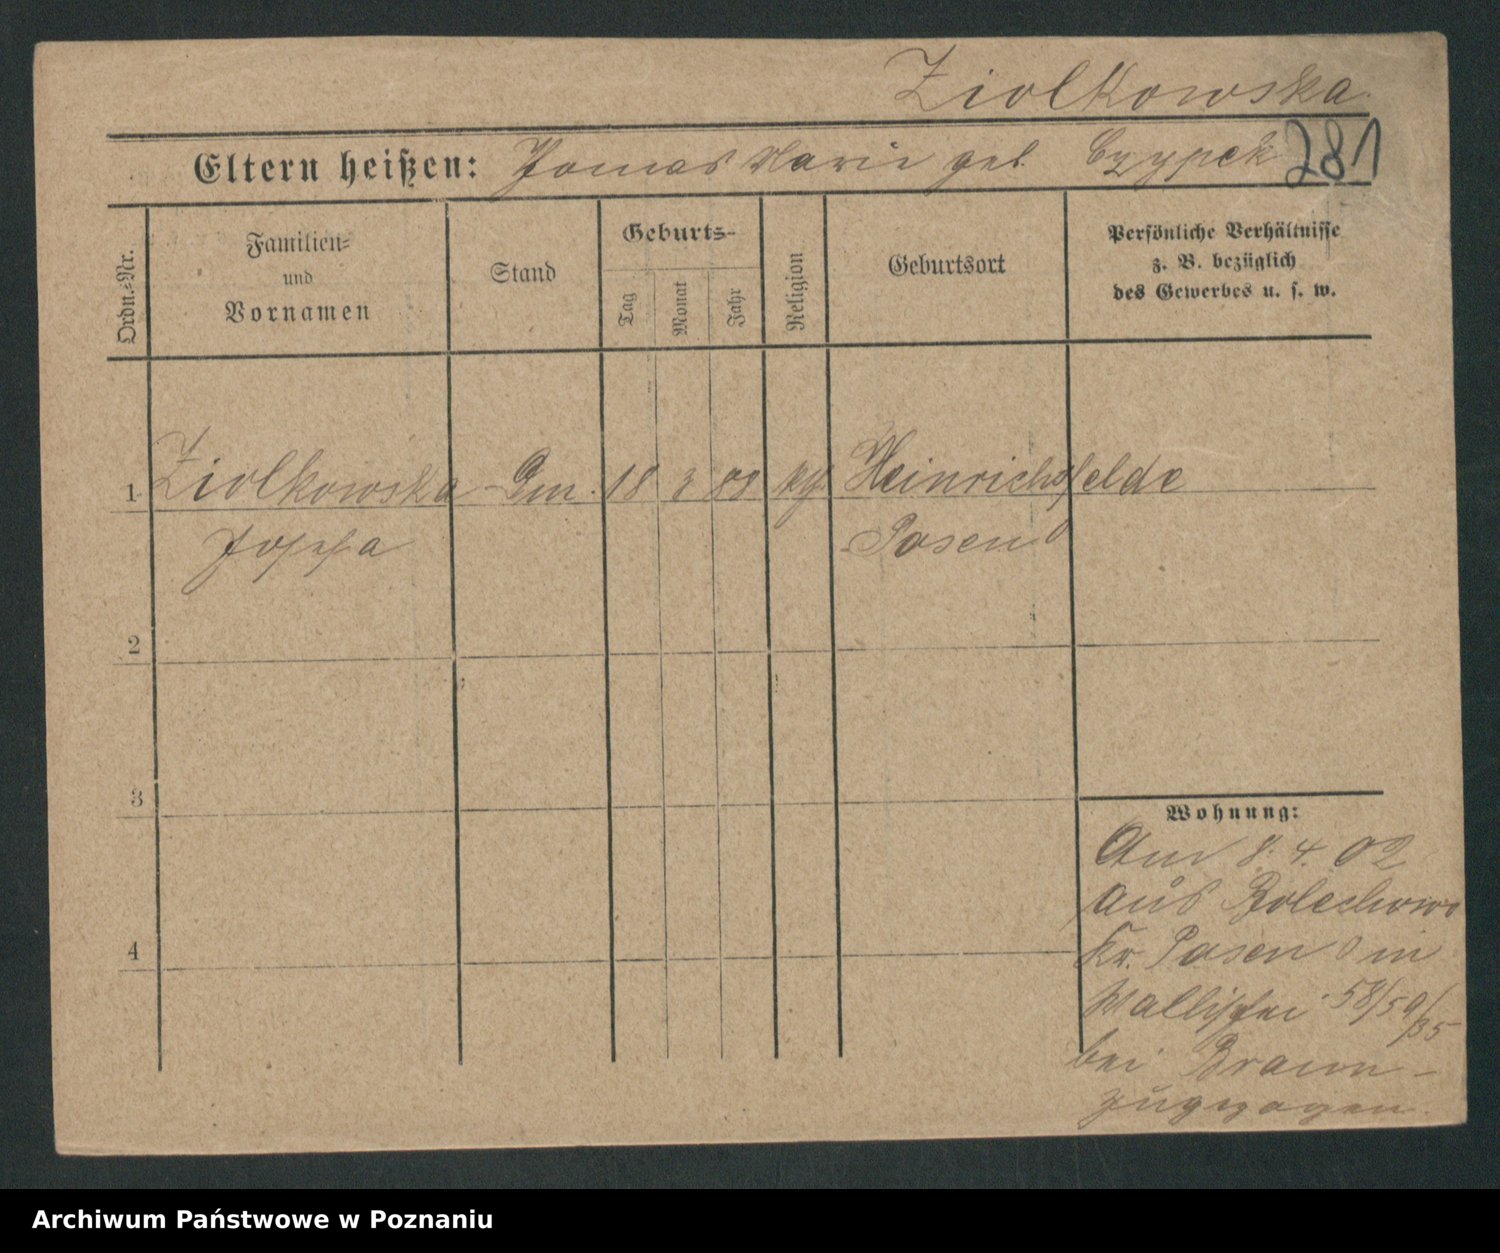 Ziolkowska
Eltern heißen: Thomas Marie geb. Czypek 281
Ordn.-Nr.
Familien-
und
Vornamen
Stand
Geburts-
Tag
Monat
Jahr
Religion
Geburtsort
Persönliche Verhältnisse
z. B. bezüglich
des Gewerbes u. s. w.
1 Ziolkowska 18 3 88 kth Heinrichsfelde
Josefa Posen O
2
3
4
Wohnung:
Am 8. 4. 02
aus Bolechowo
Kr. Posen O in
Wallischei 58/59/35
bei Braun
zugezogen.
Archiwum Państwowe w Poznaniu